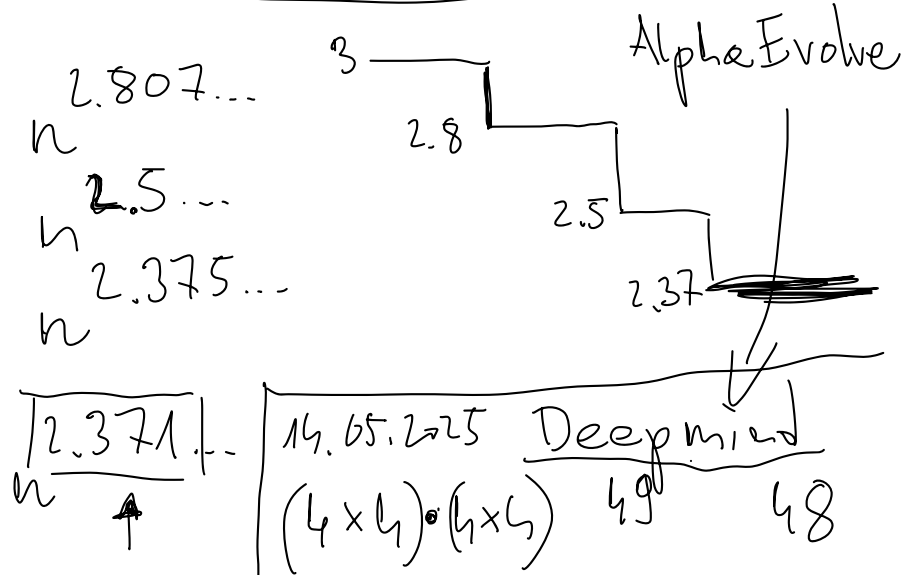 n^2.807...
n^2.5...
n^2.375...
n^2.371...
3
2.8
2.5
2.37
AlphaEvolve
14.05.2025 Deepmind
(4×4)·(4×4) 49 48